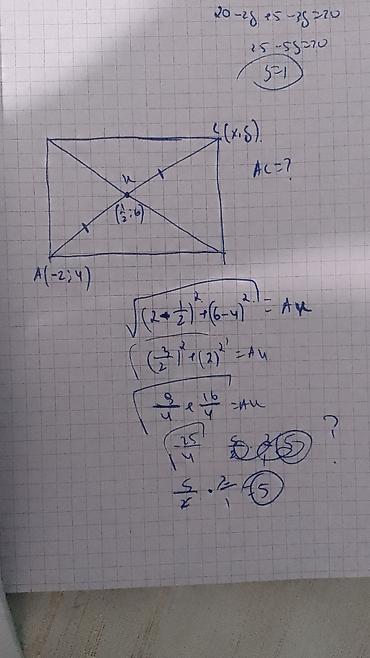 20-2y+5-3y=20
25-5y=20
y=1
C(x,y)
AC=?
K
(1/2;6)
A(-2;4)
√((2+1/2)²+(6-4)²)=AK
√((3/2)²+(2)²)=AK
√(9/4+16/4)=AK
√(25/4) 5/2 · 2/1 = 5 ?
5/2 · 2/1 = 5